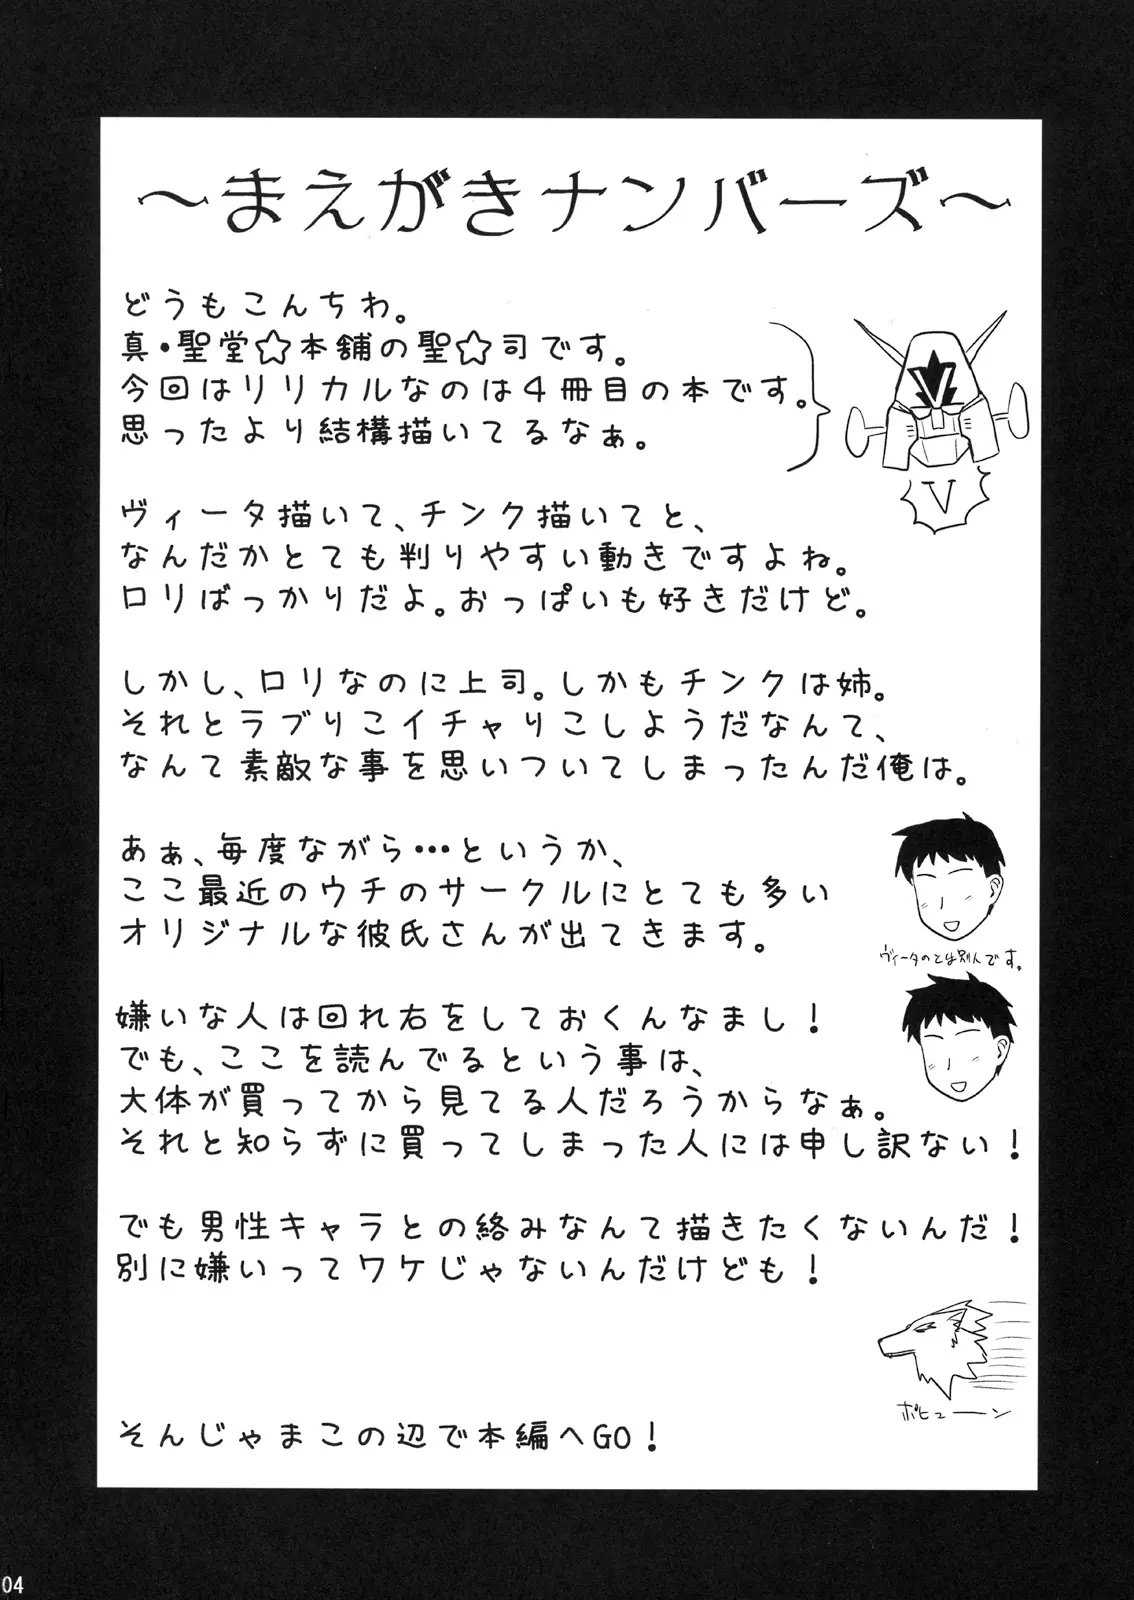 ～まえがきナンバーズ～
どうもこんちわ。
真・聖堂☆本舗の聖☆司です。
今回はリリカルなのは４冊目の本です。
思ったより結構描いてるなぁ。
V
ヴィータ描いて、チンク描いてと、
なんだかとても判りやすい動きですよね。
ロリばっかりだよ。おっぱいも好きだけど。
しかし、ロリなのに上司。しかもチンクは姉。
それとラブりこイチャりこしようだなんて、
なんて素敵な事を思いついてしまったんだ俺は。
あぁ、毎度ながら・・・というか、
ここ最近のウチのサークルにとても多い
オリジナルな彼氏さんが出てきます。
ヴィータのとは別人です。
嫌いな人は回れ右をしておくんなまし！
でも、ここを読んでるという事は、
大体が買ってから見てる人だろうからなぁ。
それと知らずに買ってしまった人には申し訳ない！
でも男性キャラとの絡みなんて描きたくないんだ！
別に嫌いってワケじゃないんだけども！
ポヒューーン
そんじゃまこの辺で本編へGO！
04